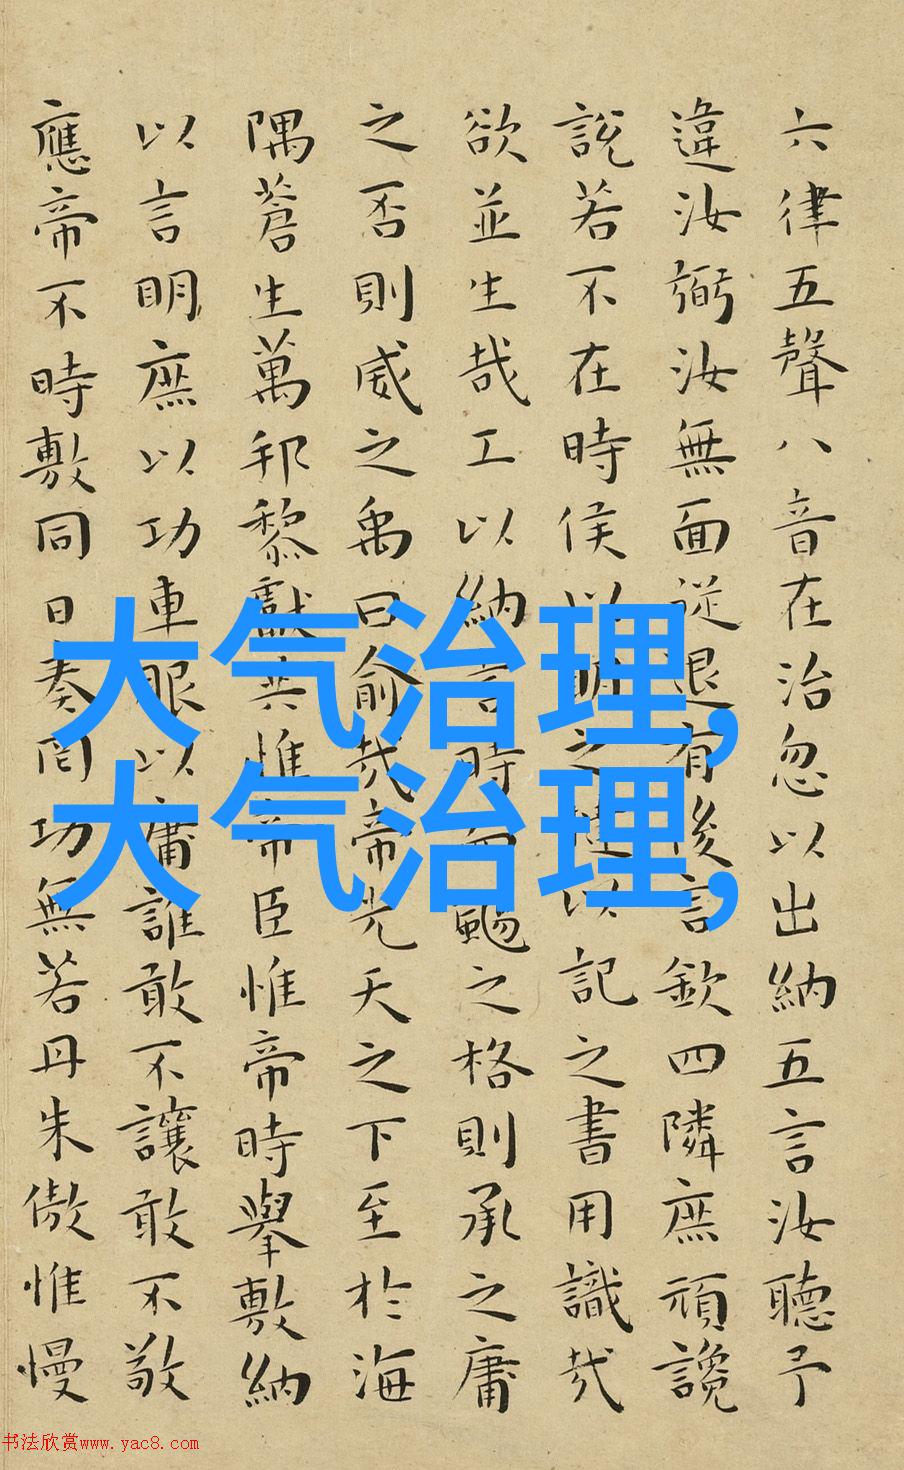 六律五聲八音在治忽以出納五言汝聽予
違汝弼汝無面從退有後言欽四隣庶頑讒
說若不在時侯以明之撻以記之書用識哉
欲並生哉工以納言時而颺之格則承之庸
之否則威之禹曰俞哉帝光天之下至於海
隅蒼生萬邦黎獻共惟帝臣惟帝時舉敷納
以言明庶以功車服以庸誰敢不讓敢不敬
應帝不時敷同日奏罔功無若丹朱傲惟慢
大气治理,
大气治理,
书法欣赏www.yac8.com